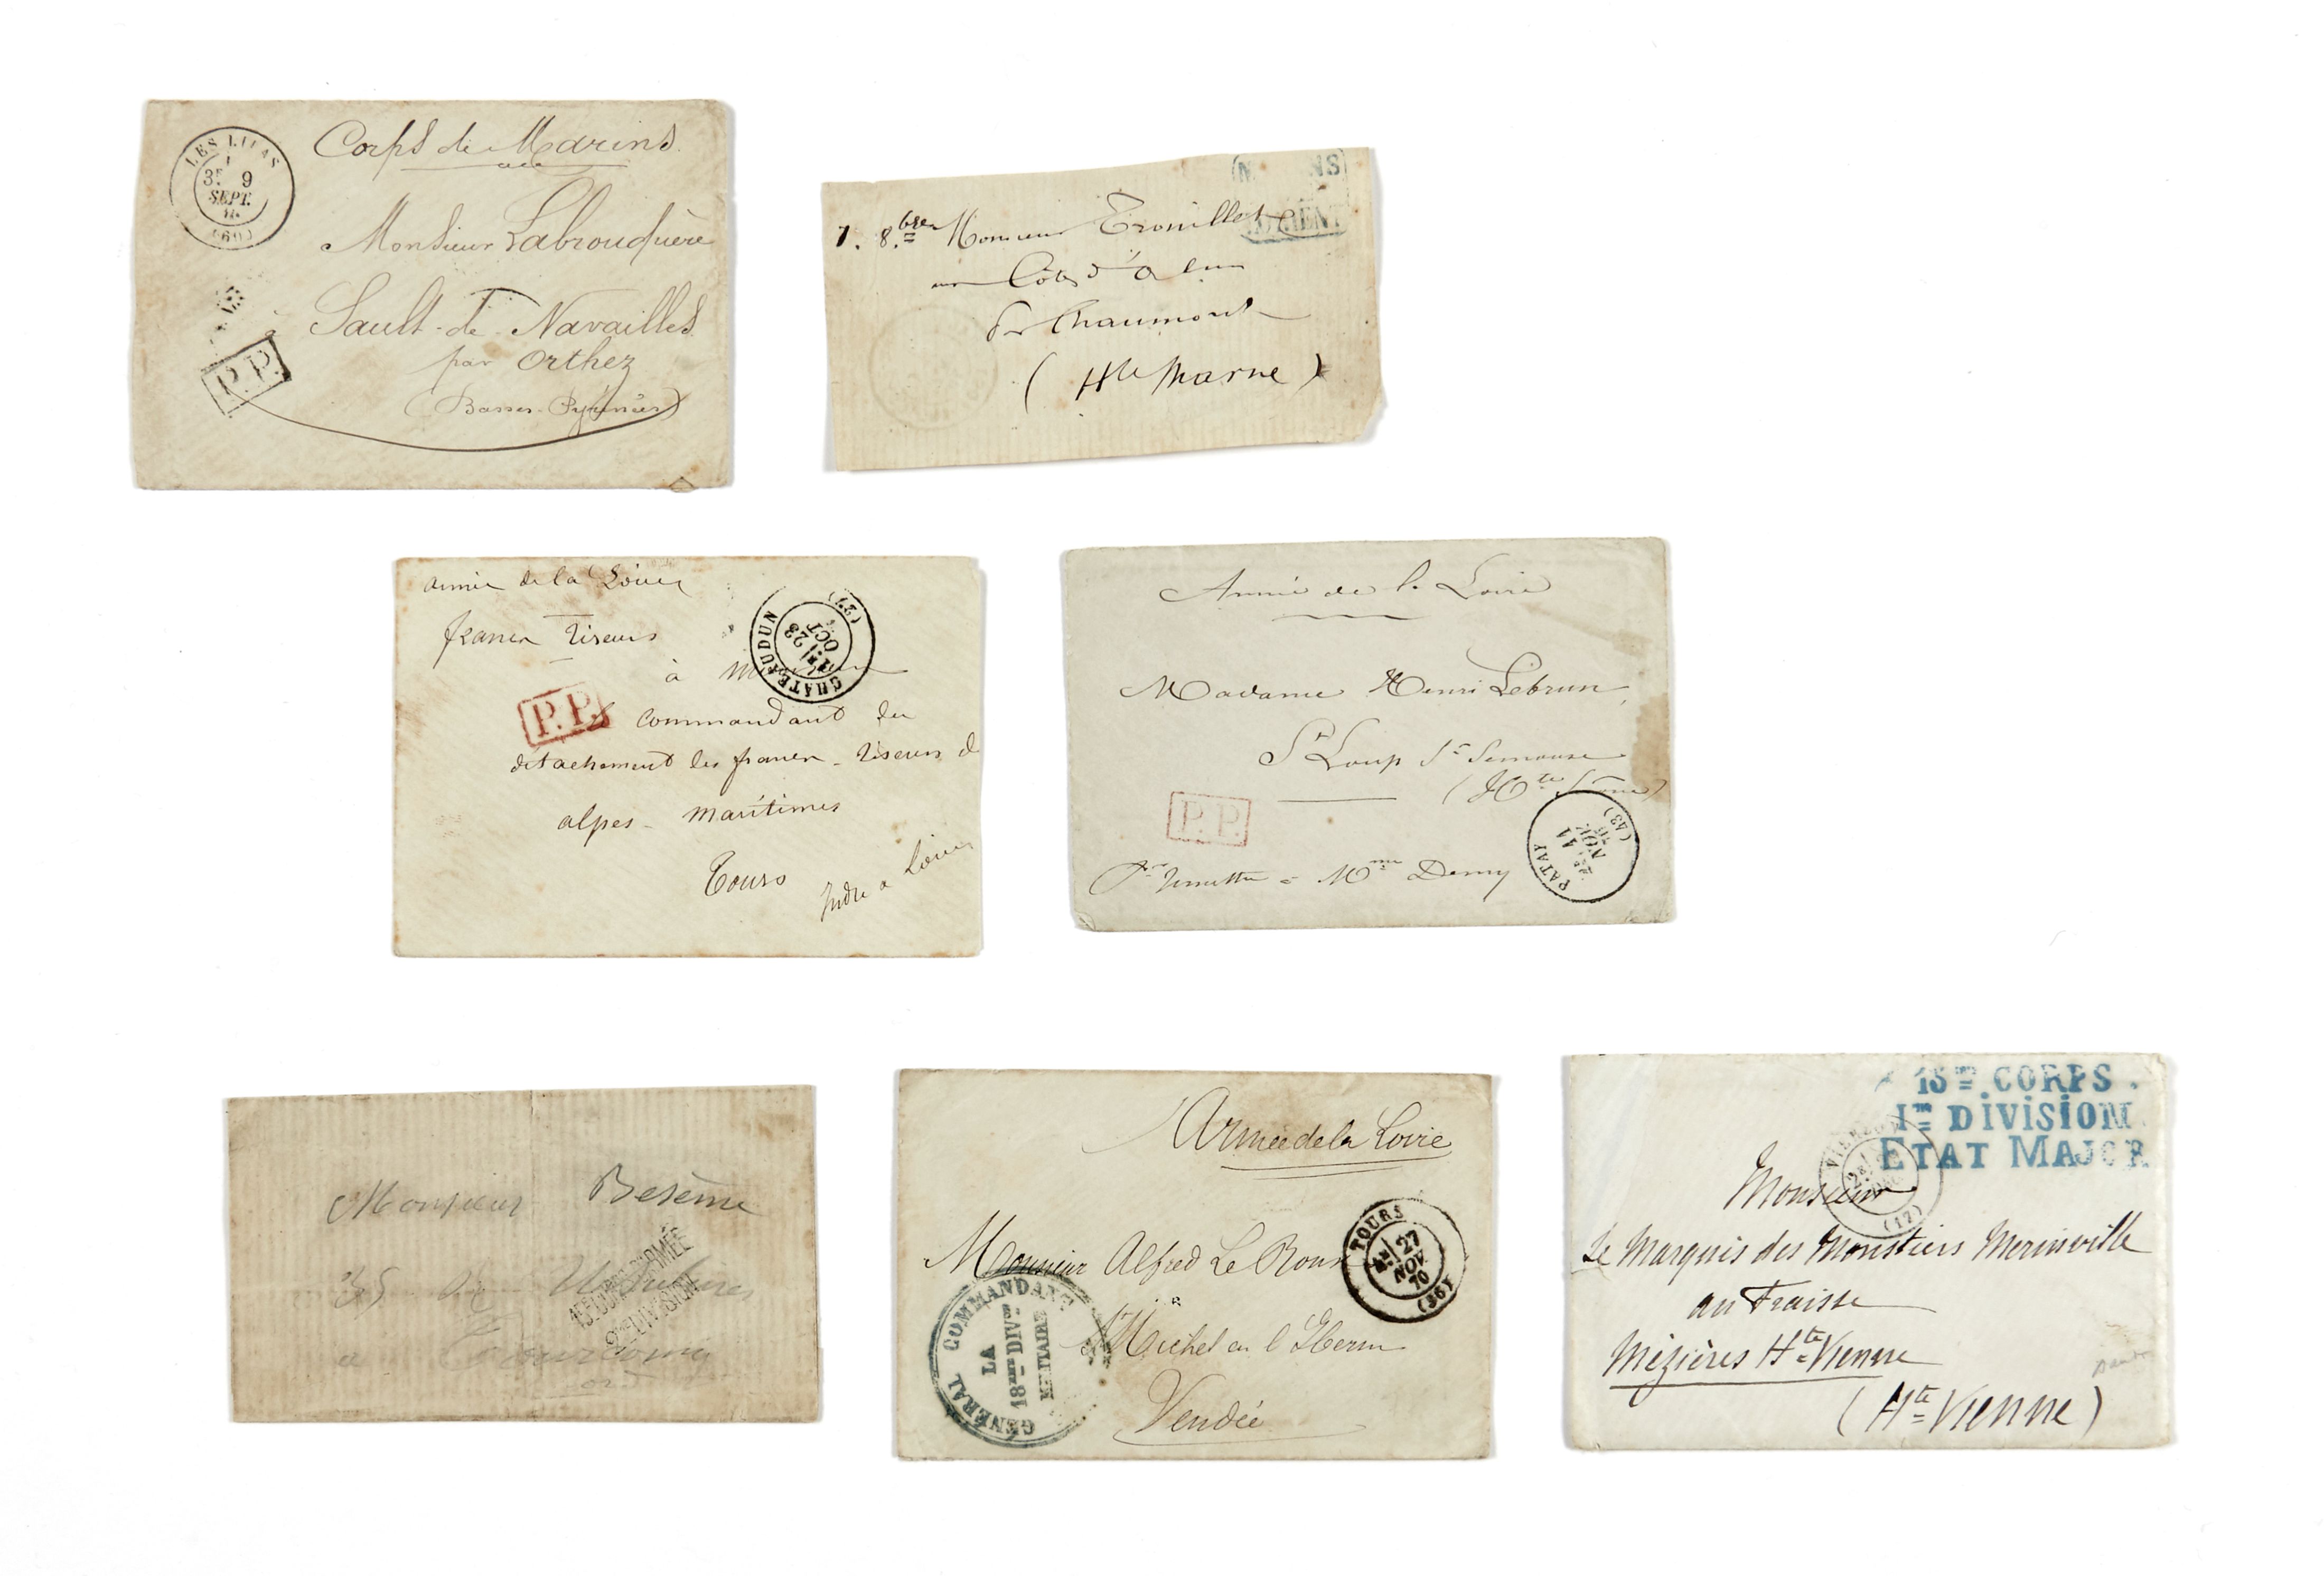 LES LILAS
3E 9
SEPT.
(60)
Corps de Marins
Monsieur Labrouquère
à Sault-de-Navailles
par Orthez
(Basses-Pyrénées)
P.P.
7. 8.bre Monsieur Trouillet
Chaumont
(Hte Marne)
armée de la Loire
francs tireurs
CHATEAUDUN
23
OCT
(27)
à
P.P.
commandant du
détachement des francs-tireurs d
alpes-maritimes
Tours
Indre a Loire
Armée de la Loire
Madame Henri Lebrun
St Loup Sr Semouse
(Hte Saone)
P.P.
Mme Demy
PATAY
11
NOV.
(43)
Monsieur Beséme
35
15E CORPS D'ARMÉE
2ME DIVISION
à Tourcoing
Armée de la Loire
TOURS
27
NOV
70
(36)
Monsieur Alfred Le Roux
St Michel en l'Herm
Vendée
GÉNÉRAL COMMANDANT
LA
18me DIVon
MILITAIRE
15me CORPS.
1re DIVISION
ETAT MAJOR
VIERZON
(17)
Monsieur
Le Marquis des Monstiers Merinville
au Fraisse
Mézières Hte Vienne
(Hte Vienne)